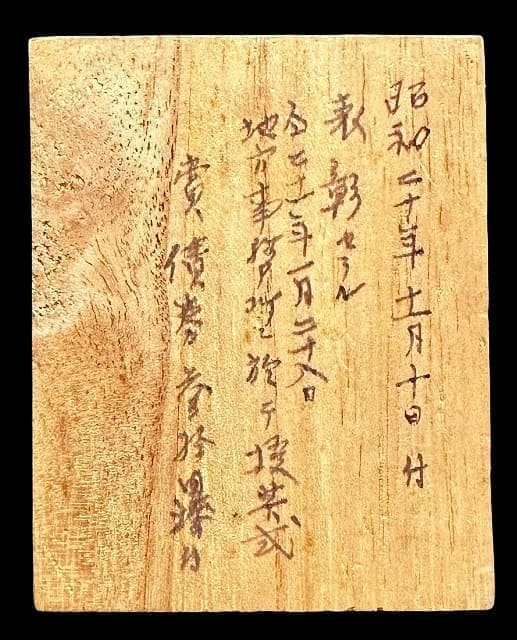 昭和二十年十一月十日付
表彰セラル
同二十一年一月二十八日
地方事務所ニ於テ授与式
賞債券壱拾